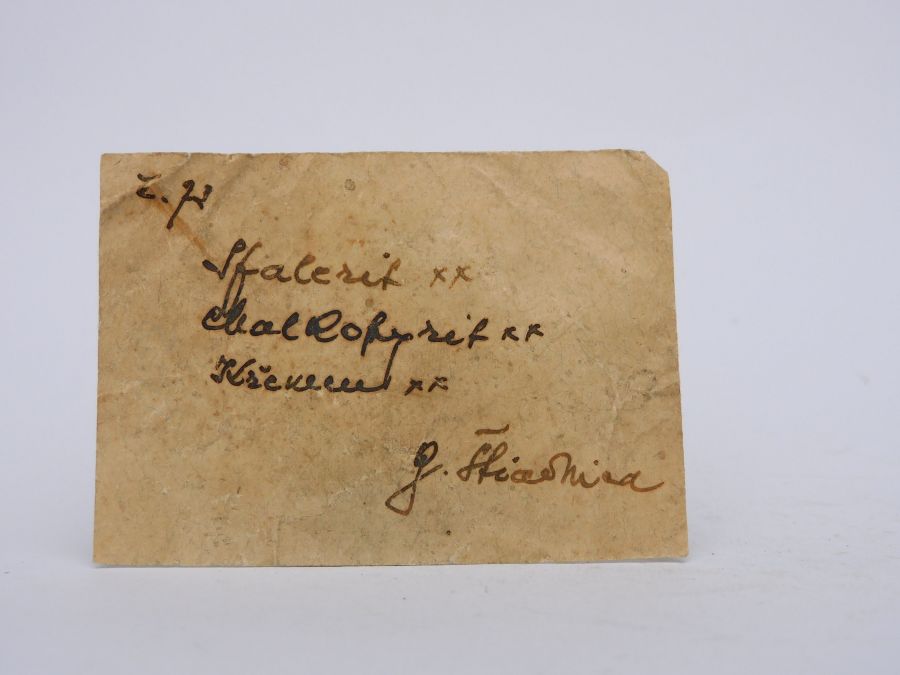 Sfalerit xx
Chalkopyrit xx
Křemen xx
Štiavnica